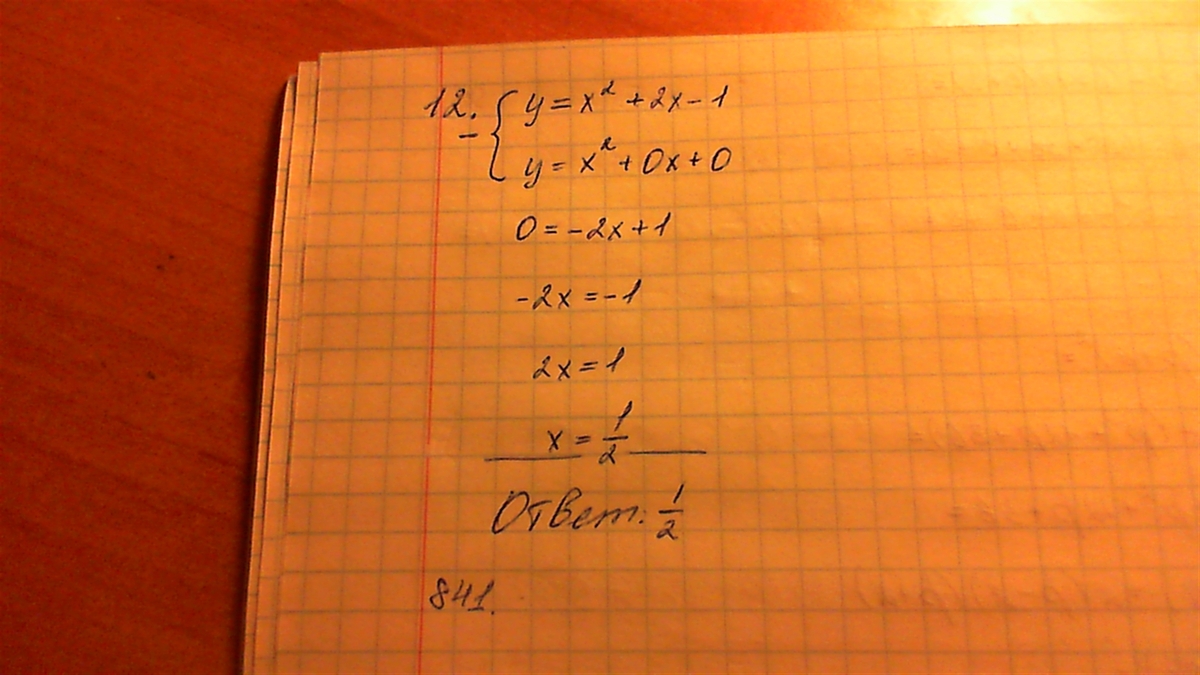 12. { y = x² + 2x - 1
- y = x² + 0x + 0
0 = -2x + 1
-2x = -1
2x = 1
x = 1/2
Ответ: 1/2
841.